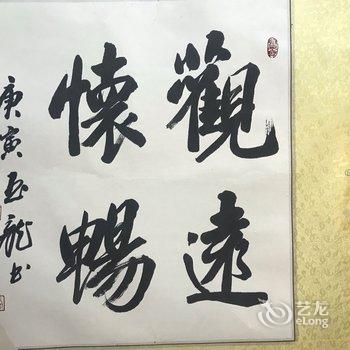 觀遠
懷暢
庚寅玉龍书
艺龙
eLong